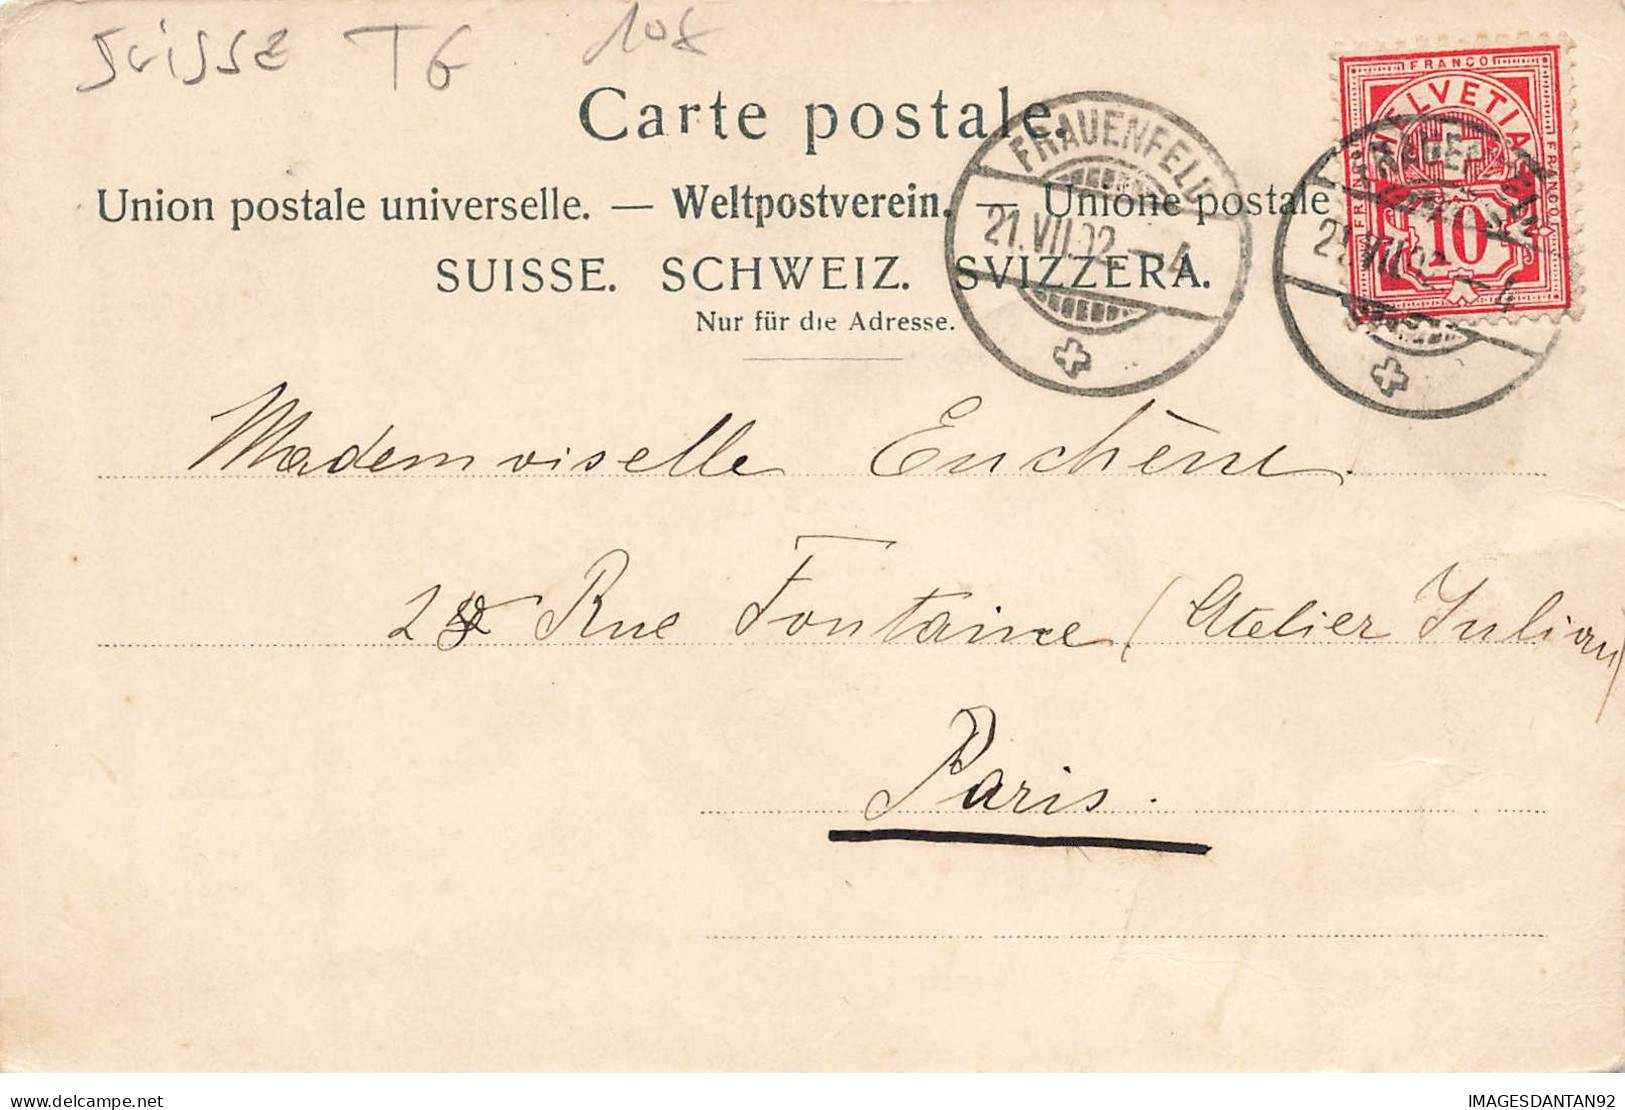 SUISSE TG 10€
Carte postale.
Union postale universelle. — Weltpostverein. — Unione postale
SUISSE. SCHWEIZ. SVIZZERA.
Nur für die Adresse.
FRANCO
HELVETIA
FRANCO
FRANCO
10
FRAUENFELD
21.VII.02.–4
FRAUENFELD
21.VII.02.–4
Mademoiselle Enchène.
28 Rue Fontaine (Atelier Julian)
Paris.
delcampe.net
IMAGESDANTAN92